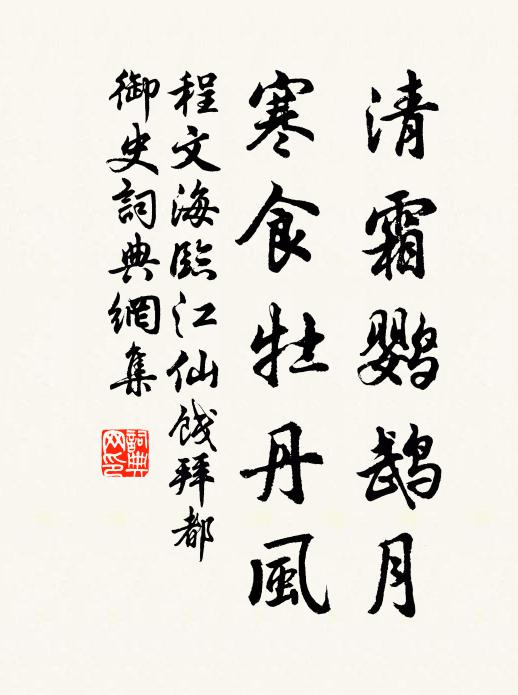 清霜鹦鹉月
寒食牡丹風
程文海臨江仙餞拜都
御史詞典網集
詞典网印